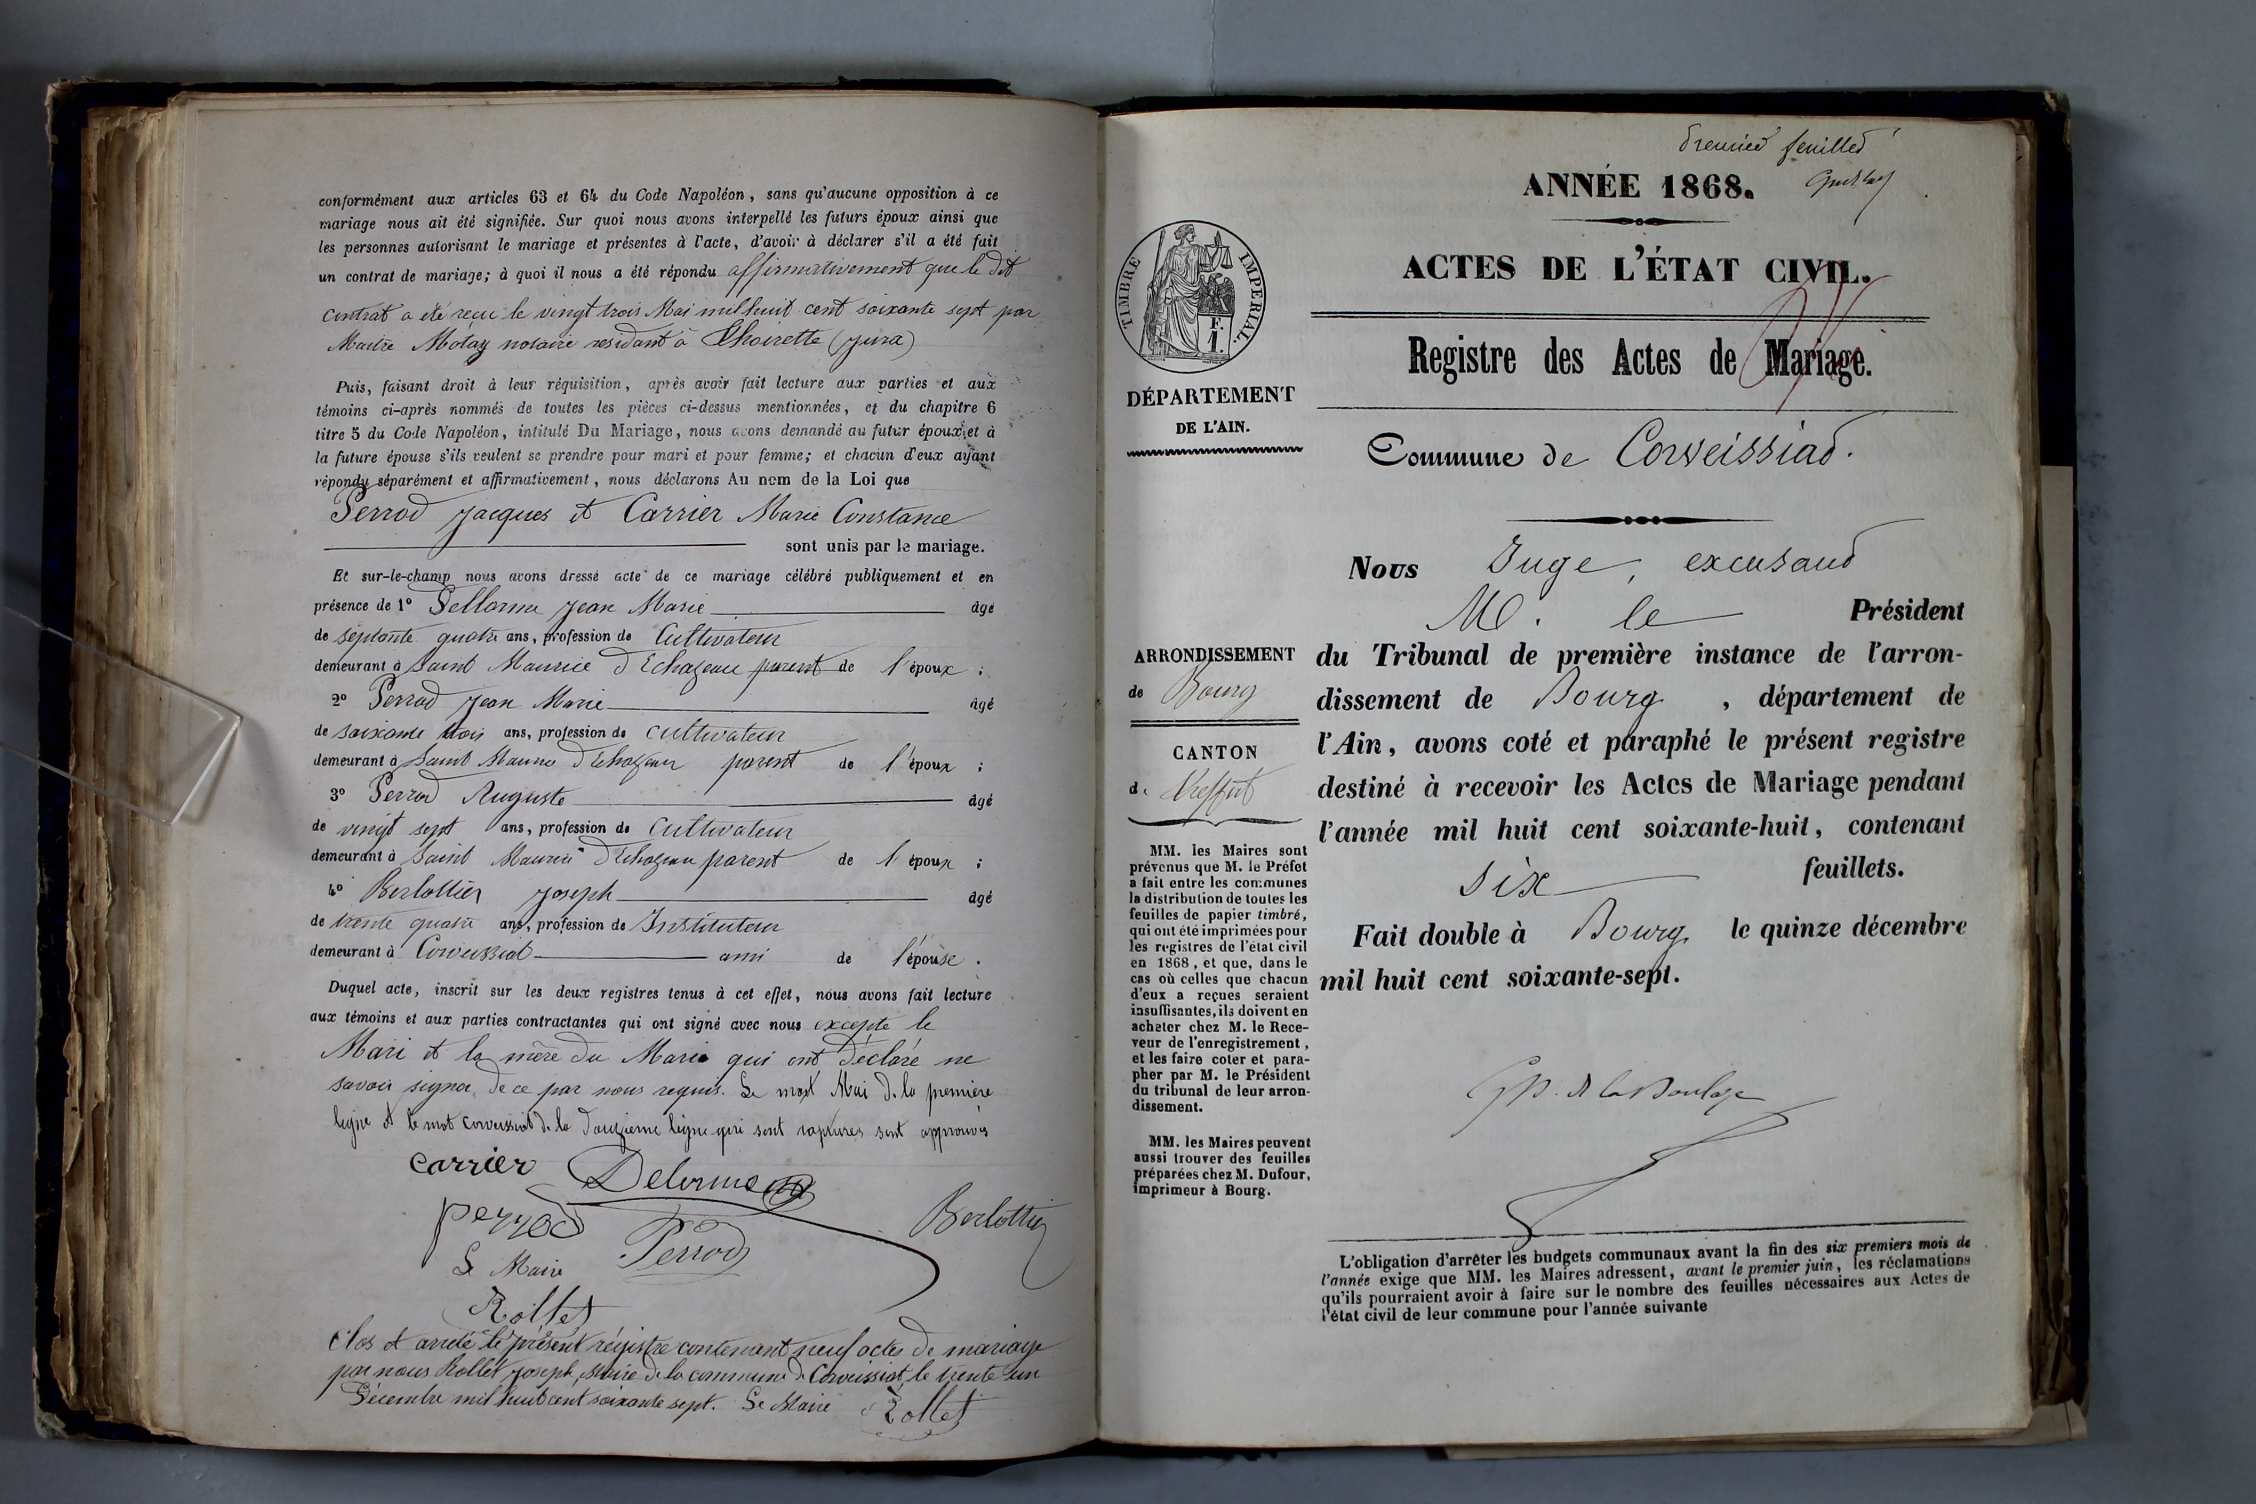 conformément aux articles 63 et 64 du Code Napoléon, sans qu'aucune opposition à ce
mariage nous ait été signifiée. Sur quoi nous avons interpellé les futurs époux ainsi que
les personnes autorisant le mariage et présentes à l'acte, d'avoir à déclarer s'il a été fait
un contrat de mariage; à quoi il nous a été répondu affirmativement que le dit
contrat a été reçu le vingt trois Mai mil huit cent soixante sept par
Maitre Molay notaire residant à Thoirette (Jura)
Puis, faisant droit à leur réquisition, après avoir fait lecture aux parties et aux
témoins ci-après nommés de toutes les pièces ci-dessus mentionnées, et du chapitre 6
titre 5 du Code Napoléon, intitulé Du Mariage, nous avons demandé au futur époux et à
la future épouse s'ils veulent se prendre pour mari et pour femme; et chacun d'eux ayant
répondu séparément et affirmativement, nous déclarons Au nom de la Loi que
Perrod Jacques et Carrier Marie Constance
sont unis par le mariage.
Et sur-le-champ nous avons dressé acte de ce mariage célébré publiquement et en
présence de 1º Jean Marie âgé
de septante quatre ans, profession de Cultivateur
demeurant à Saint Maurice d'Echazeau parent de l'époux;
2º Perrod Jean Marie âgé
de soixante trois ans, profession de cultivateur
demeurant à Saint Maurice d'Echazeau parent de l'époux;
3º Perrod Auguste âgé
de vingt sept ans, profession de Cultivateur
demeurant à Saint Maurice d'Echazeau parent de l'époux;
4º Berlottier Joseph âgé
de trente quatre ans, profession de Instituteur
demeurant à Corveissiat ami de l'épouse.
Duquel acte, inscrit sur les deux registres tenus à cet effet, nous avons fait lecture
aux témoins et aux parties contractantes qui ont signé avec nous excepté le
Mari et la mère du Marié qui ont déclaré ne
savoir signer, de ce par nous requis. Le mot Mai de la première
ligne et le mot corveissiat de la douzième ligne qui sont raturés sont approuvés
Carrier Delorme
Perrod Perrod Berlottier
Le Maire
Rollet
Clos et arrêté le présent régistre contenant neuf actes de mariage
par nous Rollet Joseph, maire de la commune de Corveissiat, le trente un
Décembre mil huit cent soixante sept. Le Maire Rollet
Premier feuillet
ANNÉE 1868.
TIMBRE IMPÉRIAL.
F.
1.
ACTES DE L'ÉTAT CIVIL.
Registre des Actes de Mariage.
DÉPARTEMENT
DE L'AIN.
Commune de Corveissiat.
Nous Juge, excusant
M. le Président
du Tribunal de première instance de l'arron-
dissement de Bourg, département de
l'Ain, avons coté et paraphé le présent registre
destiné à recevoir les Actes de Mariage pendant
l'année mil huit cent soixante-huit, contenant
six feuillets.
Fait double à Bourg, le quinze décembre
mil huit cent soixante-sept.
ARRONDISSEMENT
de Bourg
CANTON
de Treffort
MM. les Maires sont
prévenus que M. le Préfet
a fait entre les communes
la distribution de toutes les
feuilles de papier timbré,
qui ont été imprimées pour
les registres de l'état civil
en 1868, et que, dans le
cas où celles que chacun
d'eux a reçues seraient
insuffisantes, ils doivent en
acheter chez M. le Rece-
veur de l'enregistrement,
et les faire coter et para-
pher par M. le Président
du tribunal de leur arron-
dissement.
MM. les Maires peuvent
aussi trouver des feuilles
préparées chez M. Dufour,
imprimeur à Bourg.
L'obligation d'arrêter les budgets communaux avant la fin des six premiers mois de
l'année exige que MM. les Maires adressent, avant le premier juin, les réclamations
qu'ils pourraient avoir à faire sur le nombre des feuilles nécessaires aux Actes de
l'état civil de leur commune pour l'année suivante